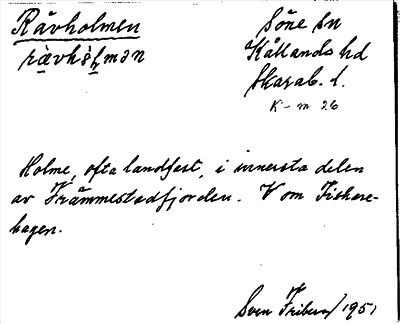 Råvholmen
Söne sn
Kållands hd
Skarab. l.
K-m 26
Holme, ofta landfast, i innersta delen
av Främmestadfjorden. V om Fiskare-
hagen.
Sven Friberg 1951